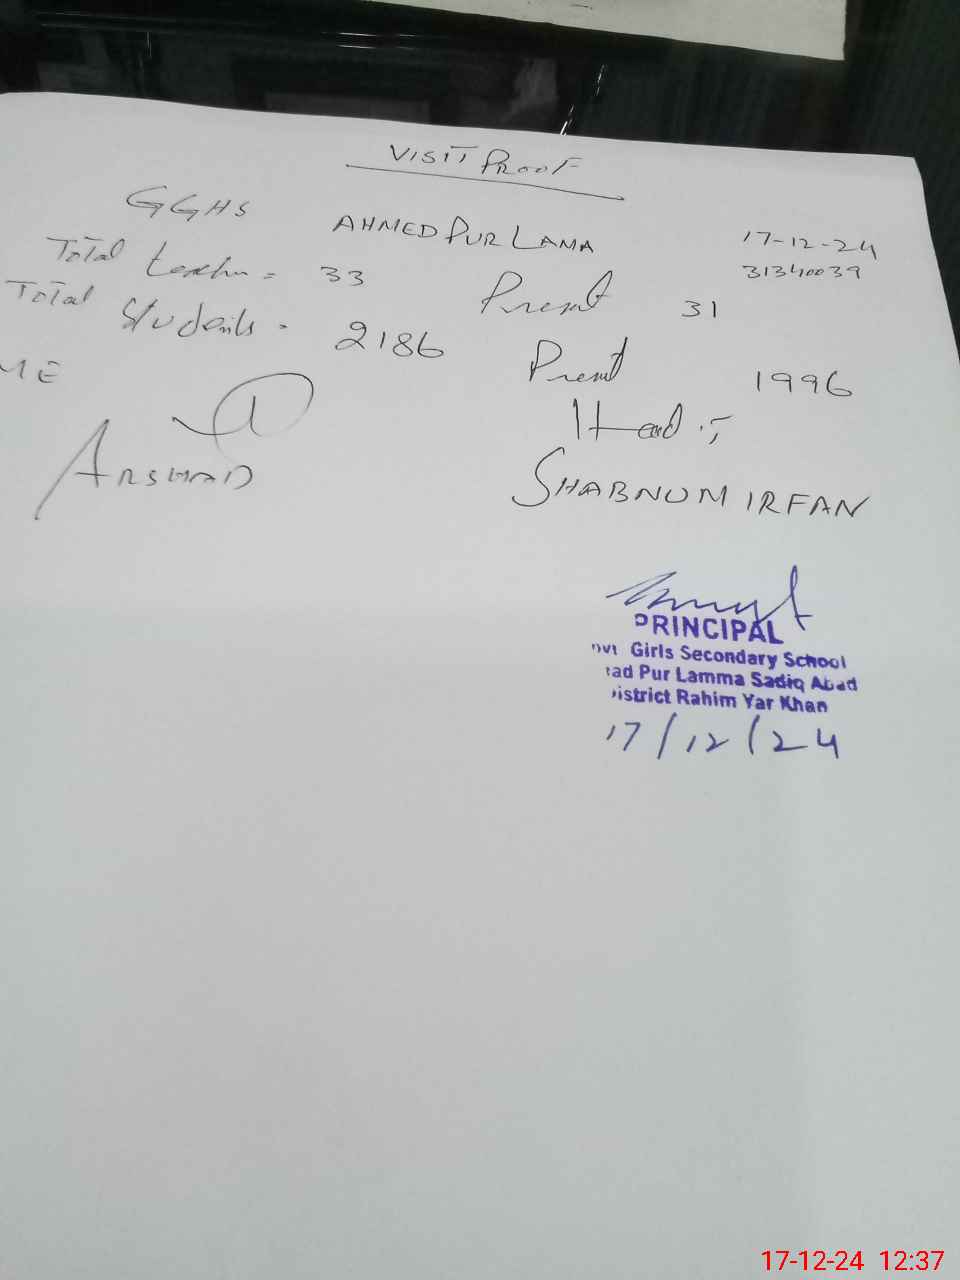 VISIT PROOF
GGHS AHMED PUR LAMA 17-12-24
31340039
Total teacher = 33 Present 31
Total Students - 2186 Present 1996
ME Head :;
ARSHAD SHABNUM IRFAN
PRINCIPAL
ovt Girls Secondary School
ad Pur Lamma Sadiq Abad
istrict Rahim Yar Khan
17/12/24
17-12-24 12:37